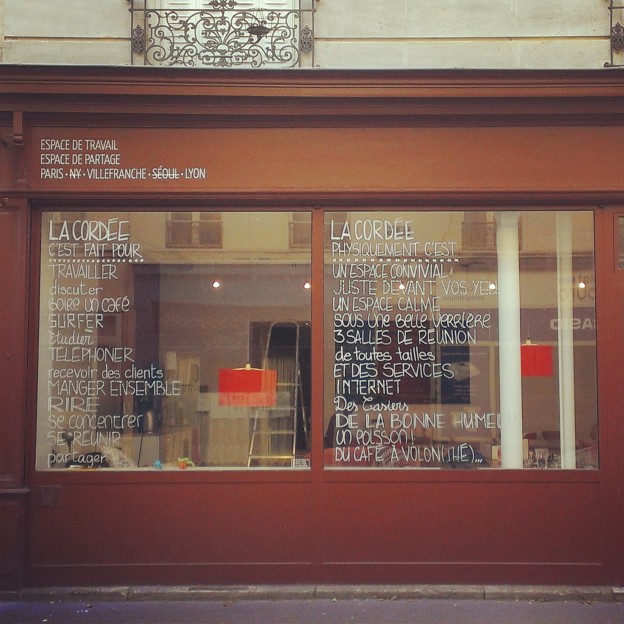 ESPACE DE TRAVAIL
ESPACE DE PARTAGE
PARIS • NY • VILLEFRANCHE • SÉOUL • LYON
LA CORDÉE
C'EST FAIT POUR
TRAVAILLER
discuter
BOIRE UN CAFÉ
SURFER
Étudier
TÉLÉPHONER
recevoir des clients
MANGER ENSEMBLE
RIRE
Se concentrer
SE RÉUNIR
partager
LA CORDÉE
PHYSIQUEMENT C'EST
UN ESPACE CONVIVIAL
JUSTE DEVANT VOS
UN ESPACE CALME
SOUS UNE BELLE VERRIÈRE
3 SALLES DE RÉUNION
de toutes tailles
ET DES SERVICES
INTERNET
Des Casiers
DE LA BONNE
UN POISSON !
DU CAFÉ À VOLON(THÉ)...